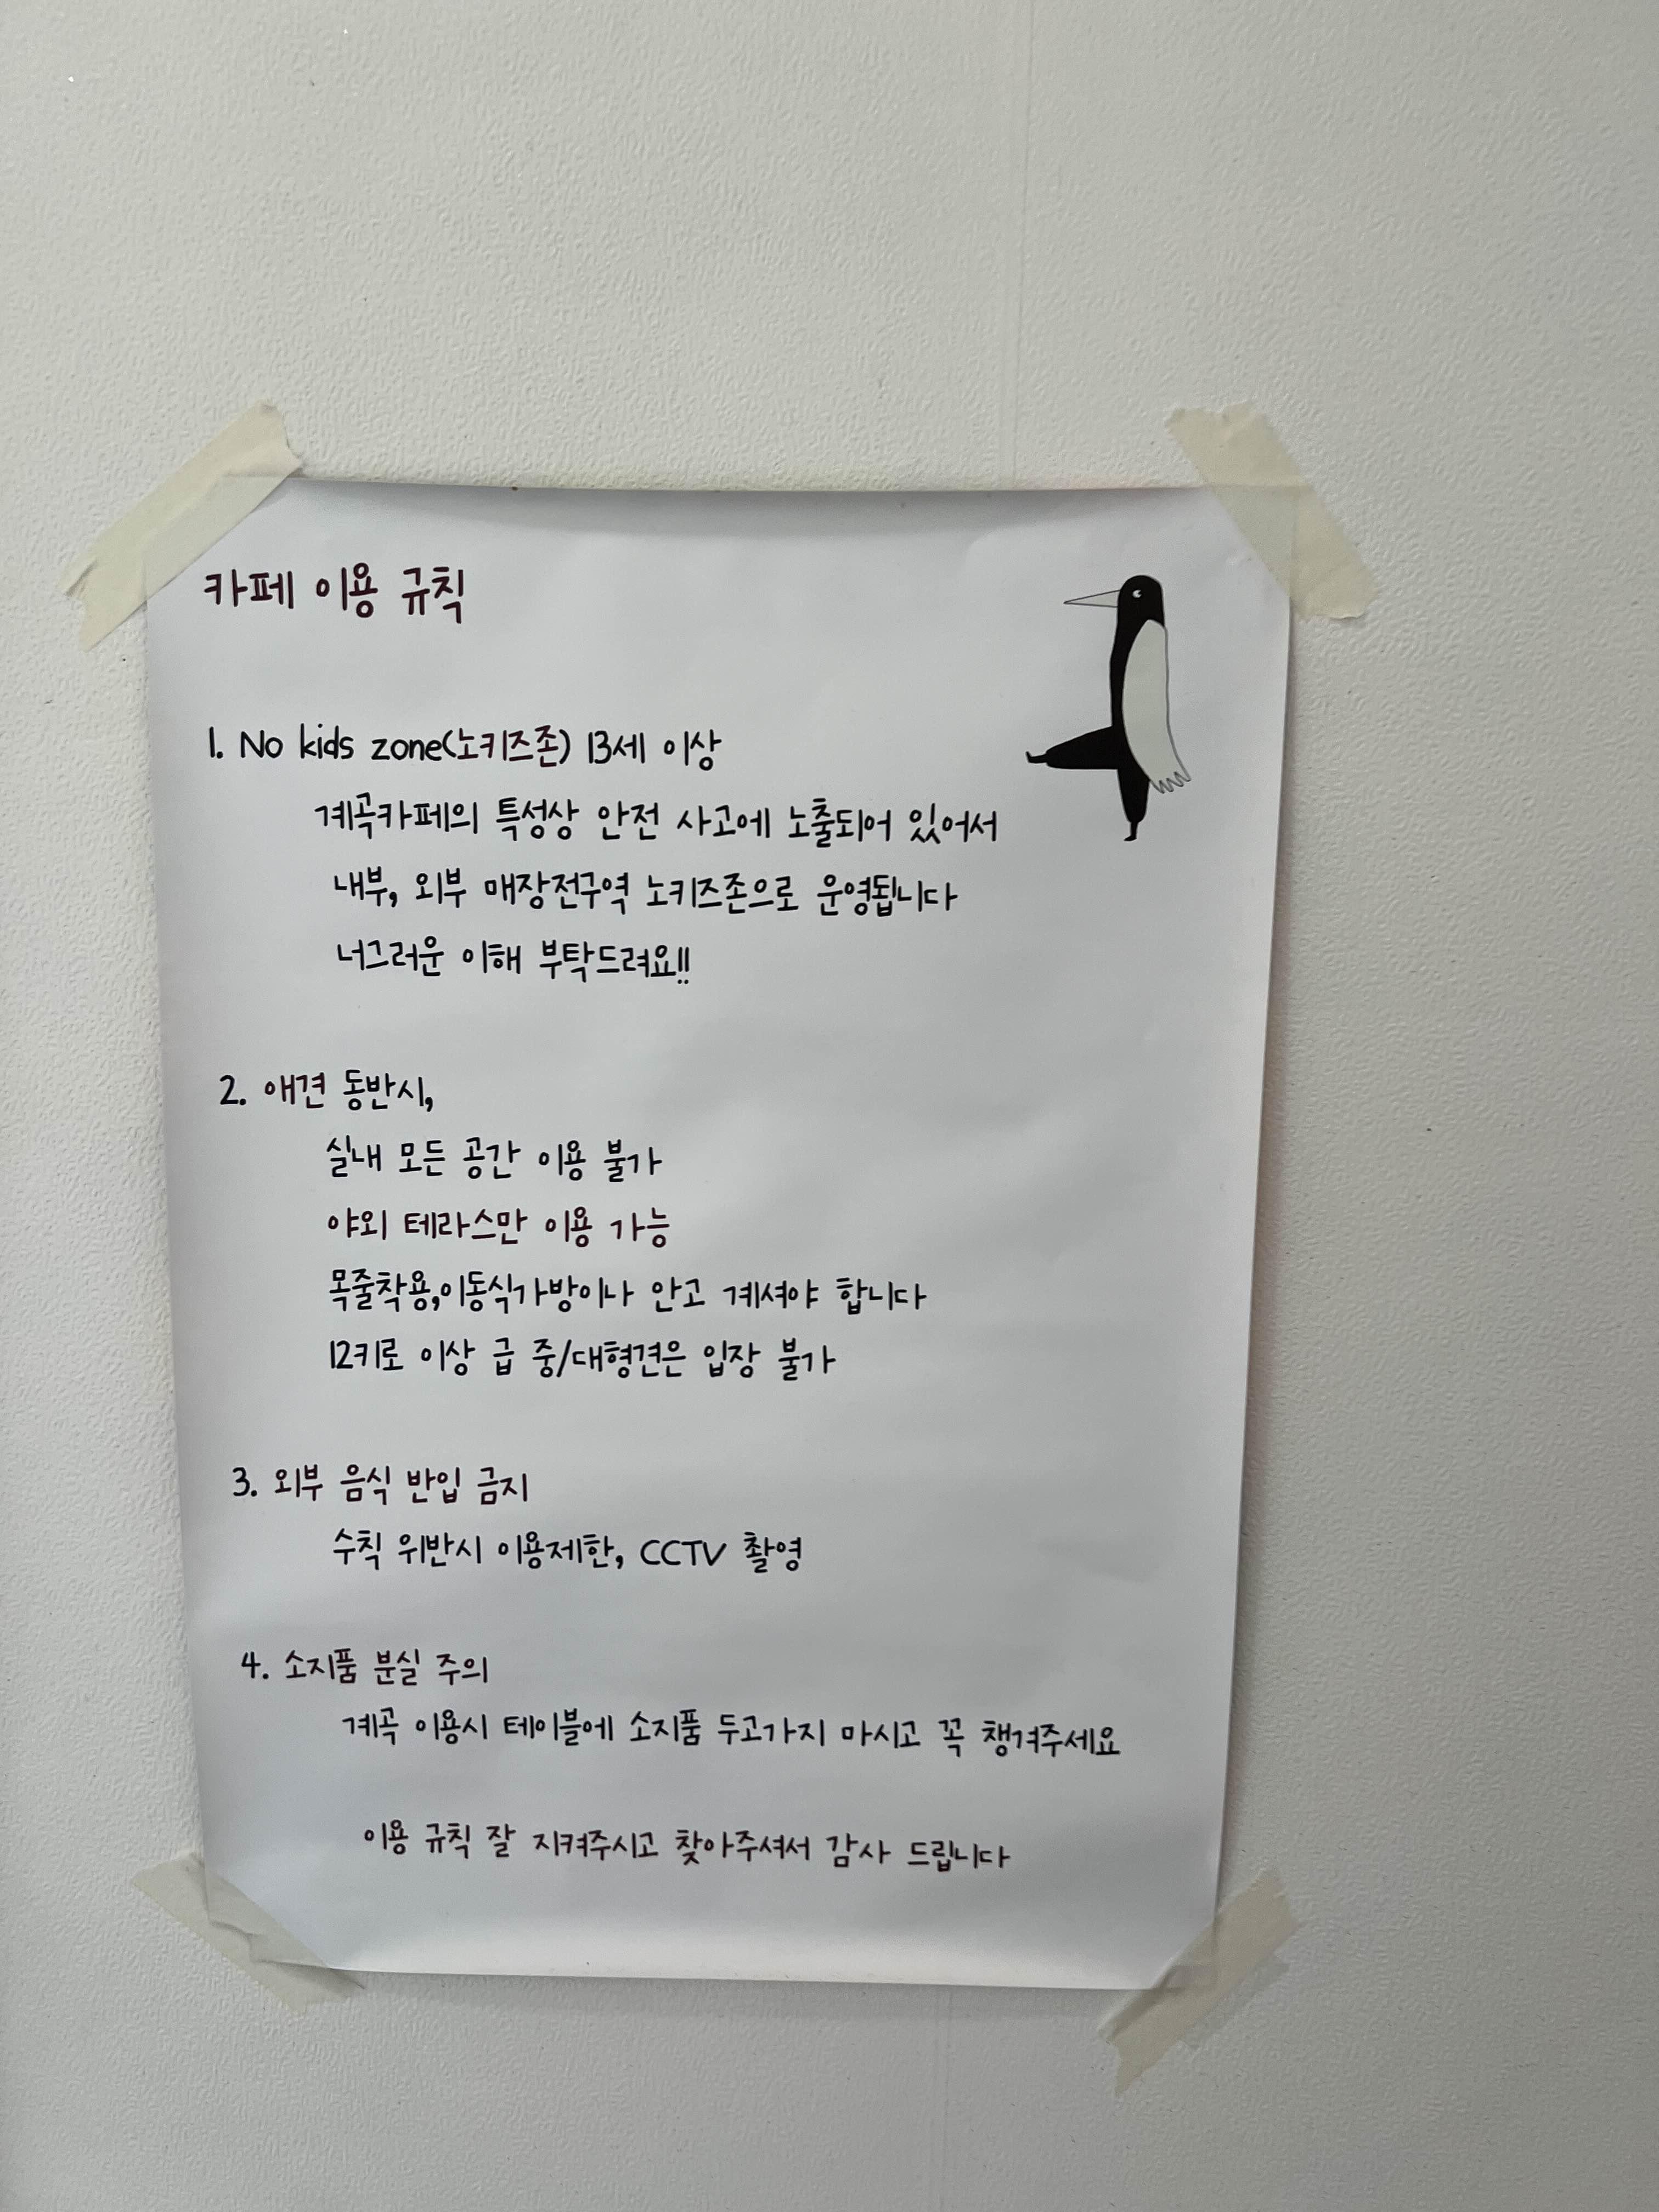 카페 이용 규칙
1. No kids zone(노키즈존) 13세 이상
계곡카페의 특성상 안전 사고에 노출되어 있어서
내부, 외부 매장전구역 노키즈존으로 운영됩니다
너그러운 이해 부탁드려요!!
2. 애견 동반시,
실내 모든 공간 이용 불가
야외 테라스만 이용 가능
목줄착용,이동식가방이나 안고 계셔야 합니다
12키로 이상 급 중/대형견은 입장 불가
3. 외부 음식 반입 금지
수칙 위반시 이용제한, CCTV 촬영
4. 소지품 분실 주의
계곡 이용시 테이블에 소지품 두고가지 마시고 꼭 챙겨주세요
이용 규칙 잘 지켜주시고 찾아주셔서 감사 드립니다